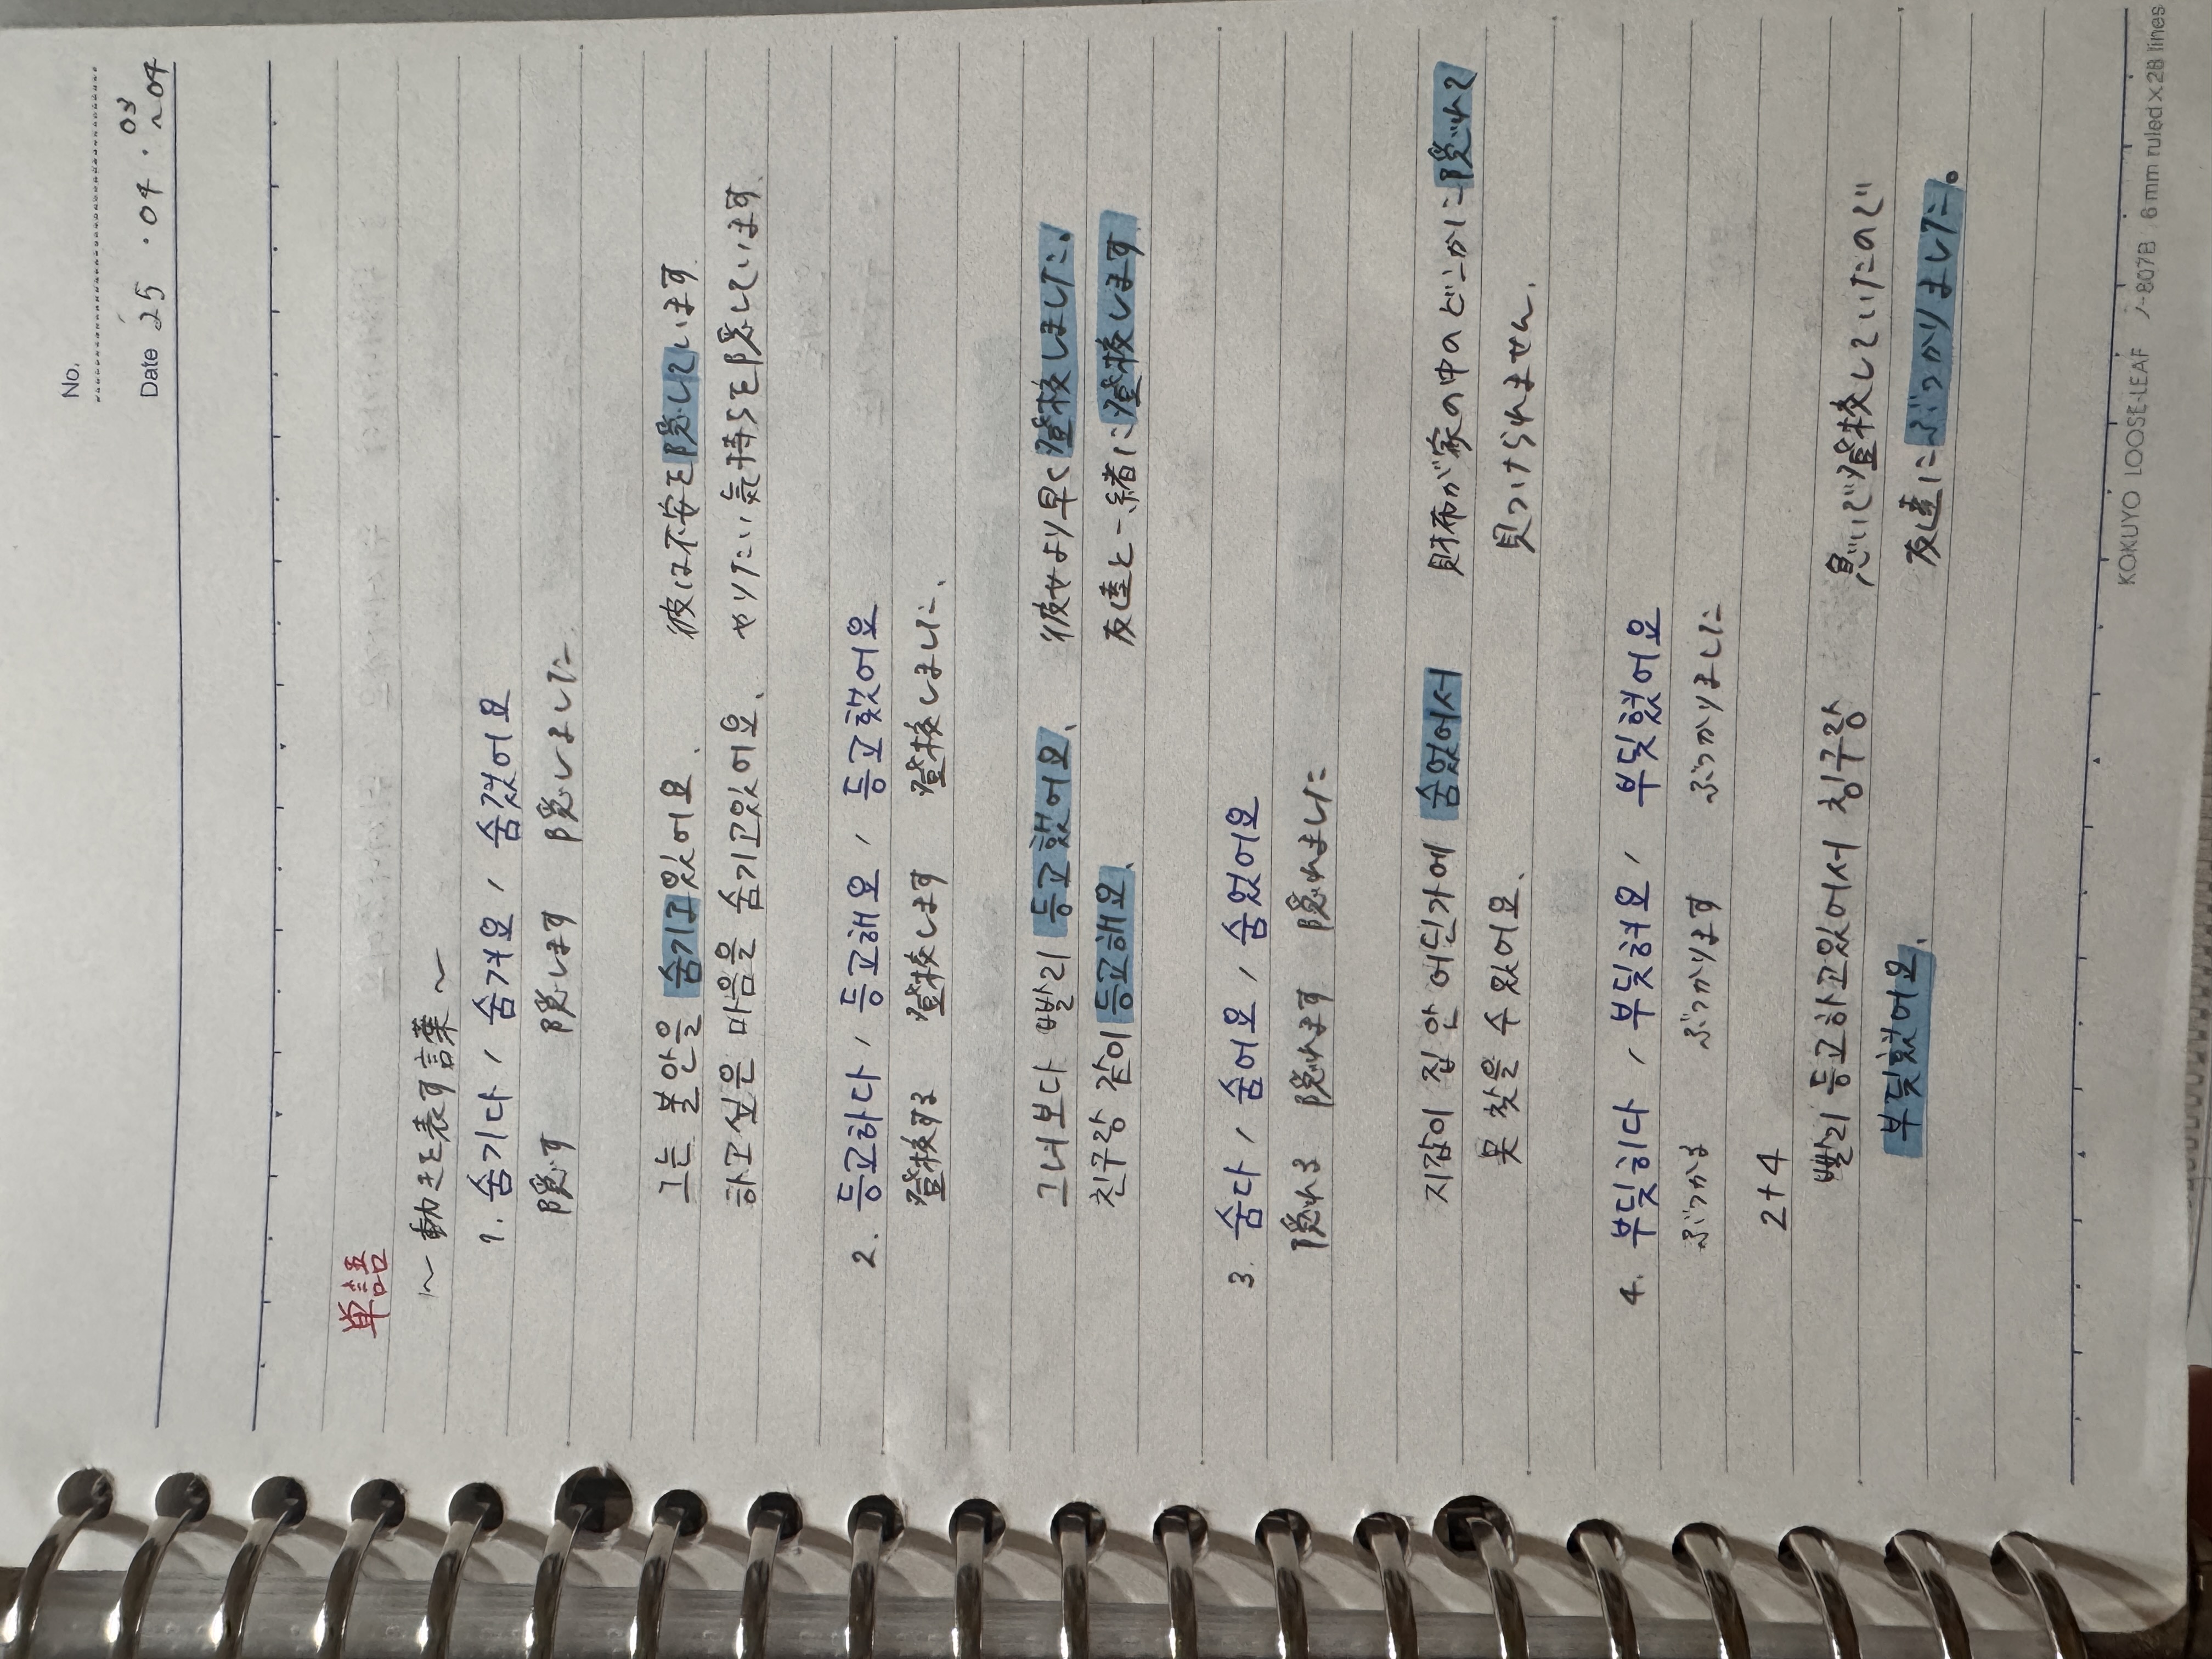 No.
Date 25 ・04 ・03
~04
単語
~ 動きを表す言葉 ~
1. 숨기다 / 숨겨요 / 숨겼어요
隠す 隠します 隠しました
그는 불안을 숨기고있어요. 彼は不安を隠しています.
하고싶은 마음을 숨기고있어요. やりたい気持ちを隠しています.
2. 등교하다 / 등교해요 / 등교했어요
登校する 登校します 登校しました.
그녀보다 빨리 등교했어요. 彼女より早く登校しました.
친구랑 같이 등교해요. 友達と一緒に登校します
3. 숨다 / 숨어요 / 숨었어요
隠れる 隠れます 隠れました
지갑이 집 안 어딘가에 숨었어서 財布が家の中のどこかに隠れて
못 찾을 수 있어요. 見つけられません.
4. 부딪히다 / 부딪혀요 / 부딪혔어요
ぶつかる ぶつかります ぶつかりました
2+4
빨리 등교하고있어서 칭구랑 急いで登校していたので
부딪혔어요. 友達にぶつかりました。
KOKUYO LOOSE-LEAF ノ-807B 6 mm ruled×28 lines